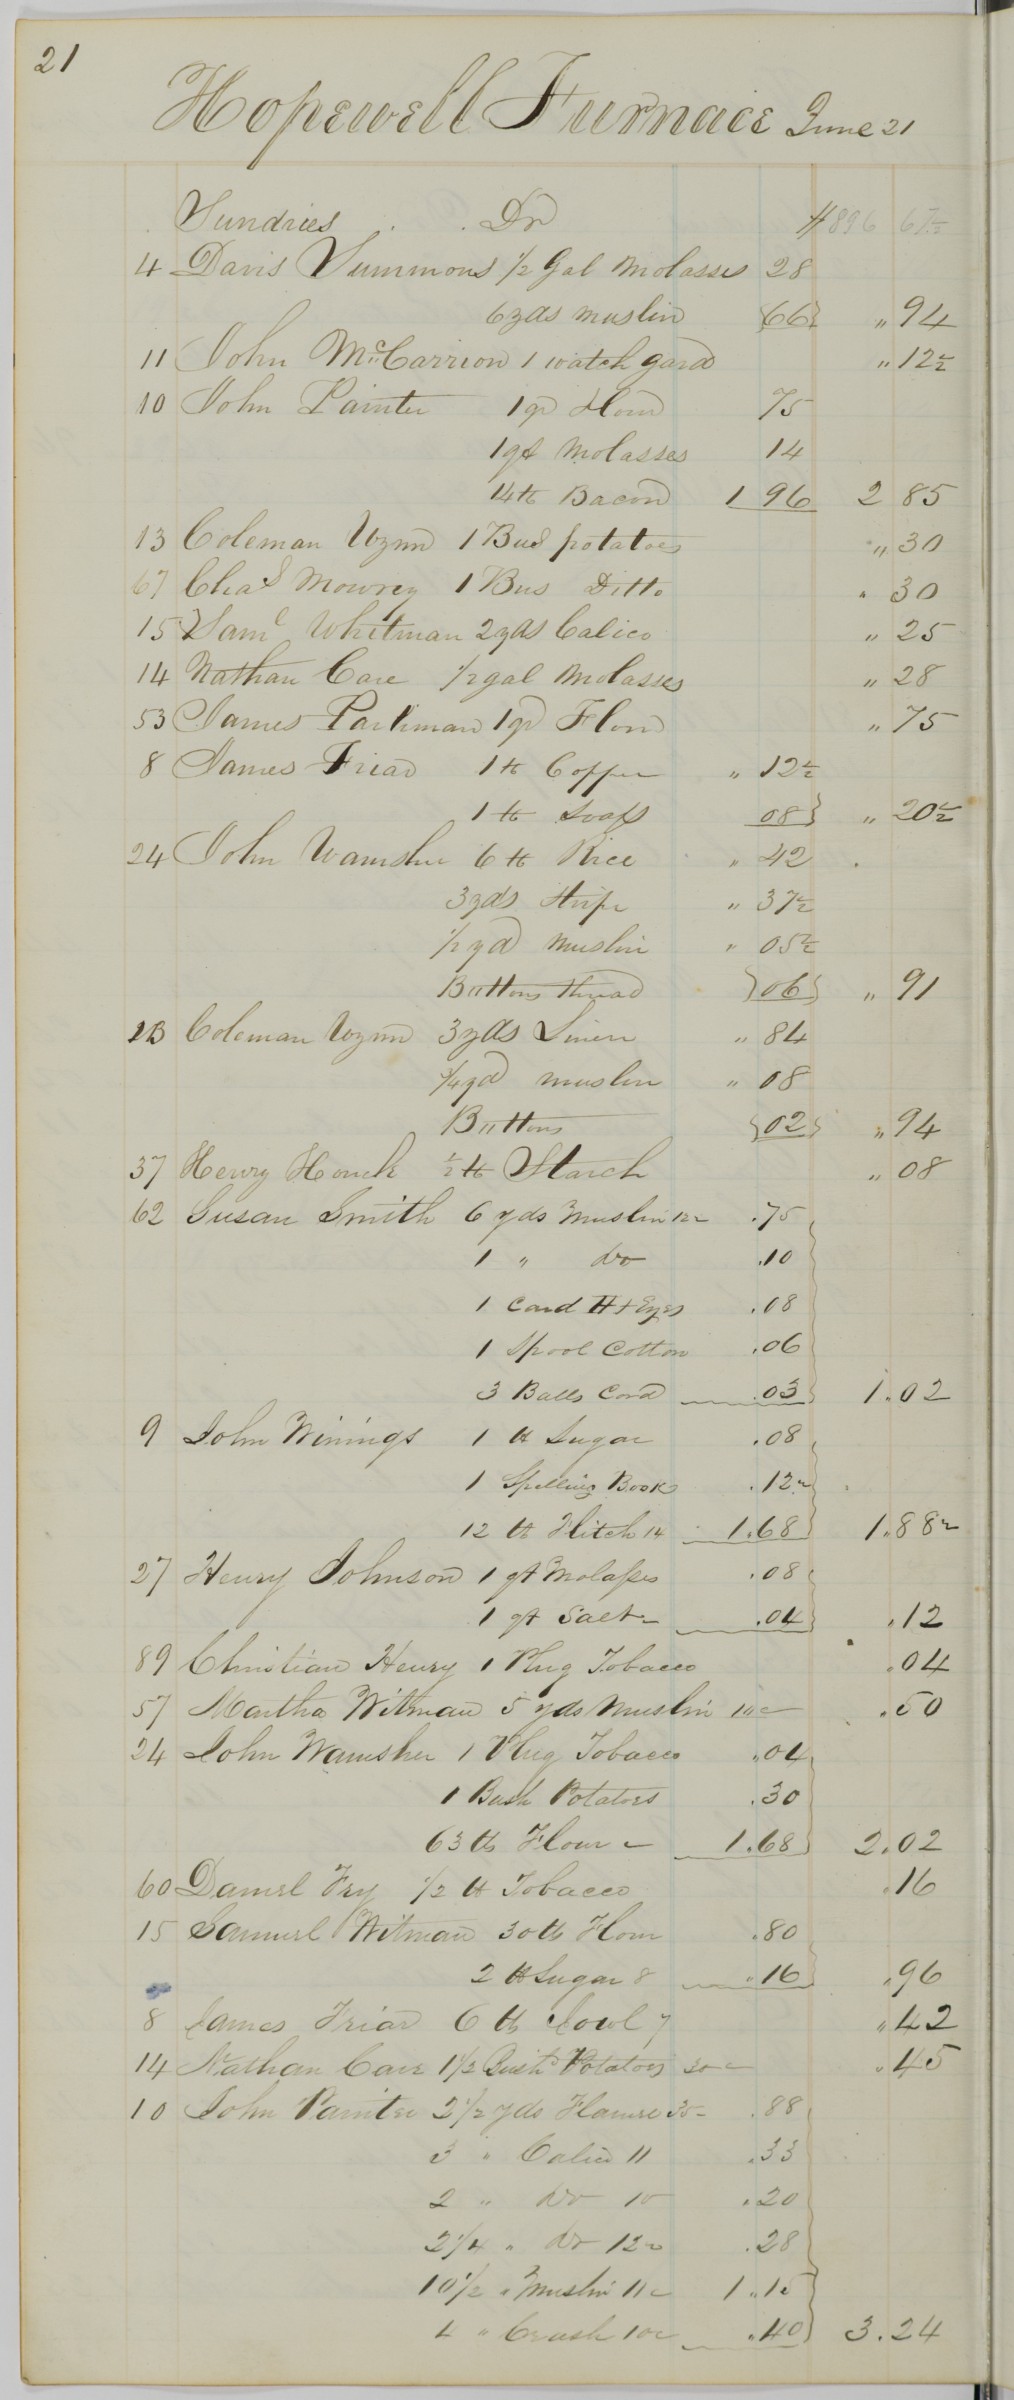 21
Hopewell Furnace June 21
Sundries . . Dr $896 67½
4 Davis Summons ½ Gal Molasses 28
6 yds muslin 66 " 94
11 John McCarrion 1 watch gard " 12½
10 John Painter 1 qr Flour 75
1 qt Molasses 14
14 lb Bacon 1 96 2 85
13 Coleman Wynn 1 Bus potatoes " 30
67 Chas Mowrey 1 Bus Ditto " 30
15 Saml Whitman 2 yds Calico " 25
14 Nathan Care ½ gal Molasses " 28
53 James Parliman 1 qr Flour " 75
8 James Friar 1 lb Coffee " 12½
1 lb Soap 08 " 20½
24 John Wamsher 6 lb Rice " 42
3 yds Stripe " 37½
½ yd muslin " 05½
Buttons thread 06 " 91
13 Coleman Wynn 3 yds Linen " 84
¾ yd muslin " 08
Buttons 02 " 94
37 Henry Houck ½ lb Starch " 08
62 Susan Smith 6 yds Muslin 12½ .75
1 " do .10
1 Card H + Eyes .08
1 Spool Cotton .06
3 Balls Cord .03 1.02
9 John Winings 1 lb Sugar .08
1 Spelling Book .12½
12 lb Flitch 14 1.68 1.88½
27 Henry Johnson 1 qt Molasses .08
1 qt Salt .04 .12
89 Christian Henry 1 Plug Tobacco .04
57 Martha Witman 5 yds Muslin 10c .50
24 John Wamsher 1 Plug Tobacco .04
1 Bush Potatoes .30
63 lb Flour 1.68 2.02
60 Daniel Fry ½ lb Tobacco .16
15 Samuel Witman 30 lb Flour .80
2 lb Sugar 8 .16 .96
8 James Friar 6 lb Jowl 7 " 42
14 Nathan Care 1½ Bush Potatoes 30c " 45
10 John Painter 2½ yds Flannel 35 .88
3 " Calico 11 .33
2 " do 10 .20
2¼ " do 12½ .28
10½ " Muslin 11c 1.15
4 " Crash 10c .40 3.24